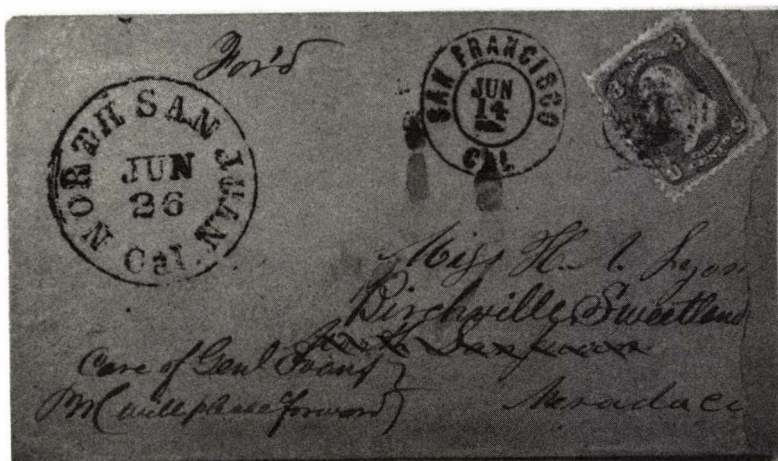 For'd
NORTH SAN JUAN
JUN
26
Cal.
SAN FRANCISCO
JUN
14
CAL
Miss H. L. Lyon
Birchville Sweetland
North San Juan
Nevada Co
Care of Genl Evans
PM (will please forward)